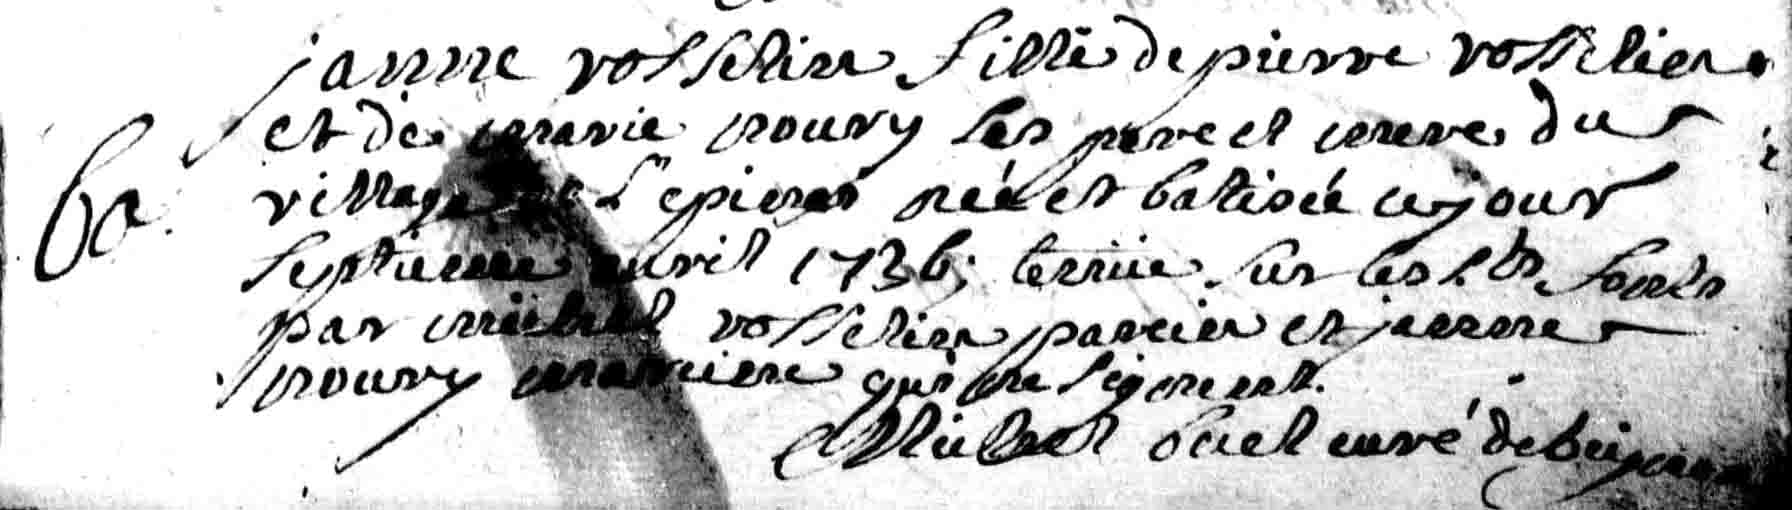 janne rosselin fille de pierre rosselin
et de marie noury ses pere et mere du
ba. village de L'epiner née et batisée ce jour
septieme avril 1736; tenüe sur les sts fonts
par michel rosselin parein et jeanne
noury mareine qui ne signent.
Michel buel curé de